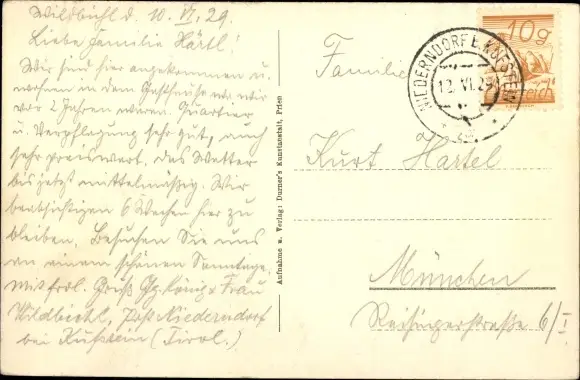 Wildbichl d. 10. VI. 29.
Liebe Familie Härtl!
Wir sind hier angekommen u.
wohnen in dem Gasthause wo wir
vor 2 Jahren waren. Quartier
u. Verpflegung sehr gut, auch
sehr preiswert. Das Wetter
bis jetzt mittelmäßig. Wir
beabsichtigen 6 Wochen hier zu
bleiben. Besuchen Sie uns
an einem schönen Sonntage.
Mit frdl. Gruß Gg. König u. Frau
Wildbichl, Post Niederndorf
bei Kufstein (Tirol.)
Aufnahme u. Verlag: Durner's Kunstanstalt, Prien
10g
NIEDERNDORF B. KUFSTEIN
12. VI. 29
Familie
Kurt Härtel
München
Reisingerstraße 6/I